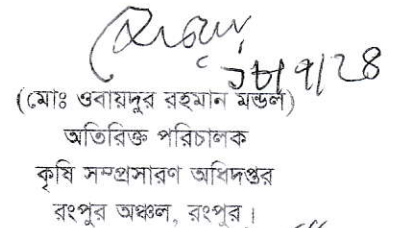 ১৮/৭/২৪
(মোঃ ওবায়দুর রহমান মন্ডল)
অতিরিক্ত পরিচালক
কৃষি সম্প্রসারণ অধিদপ্তর
রংপুর অঞ্চল, রংপুর।